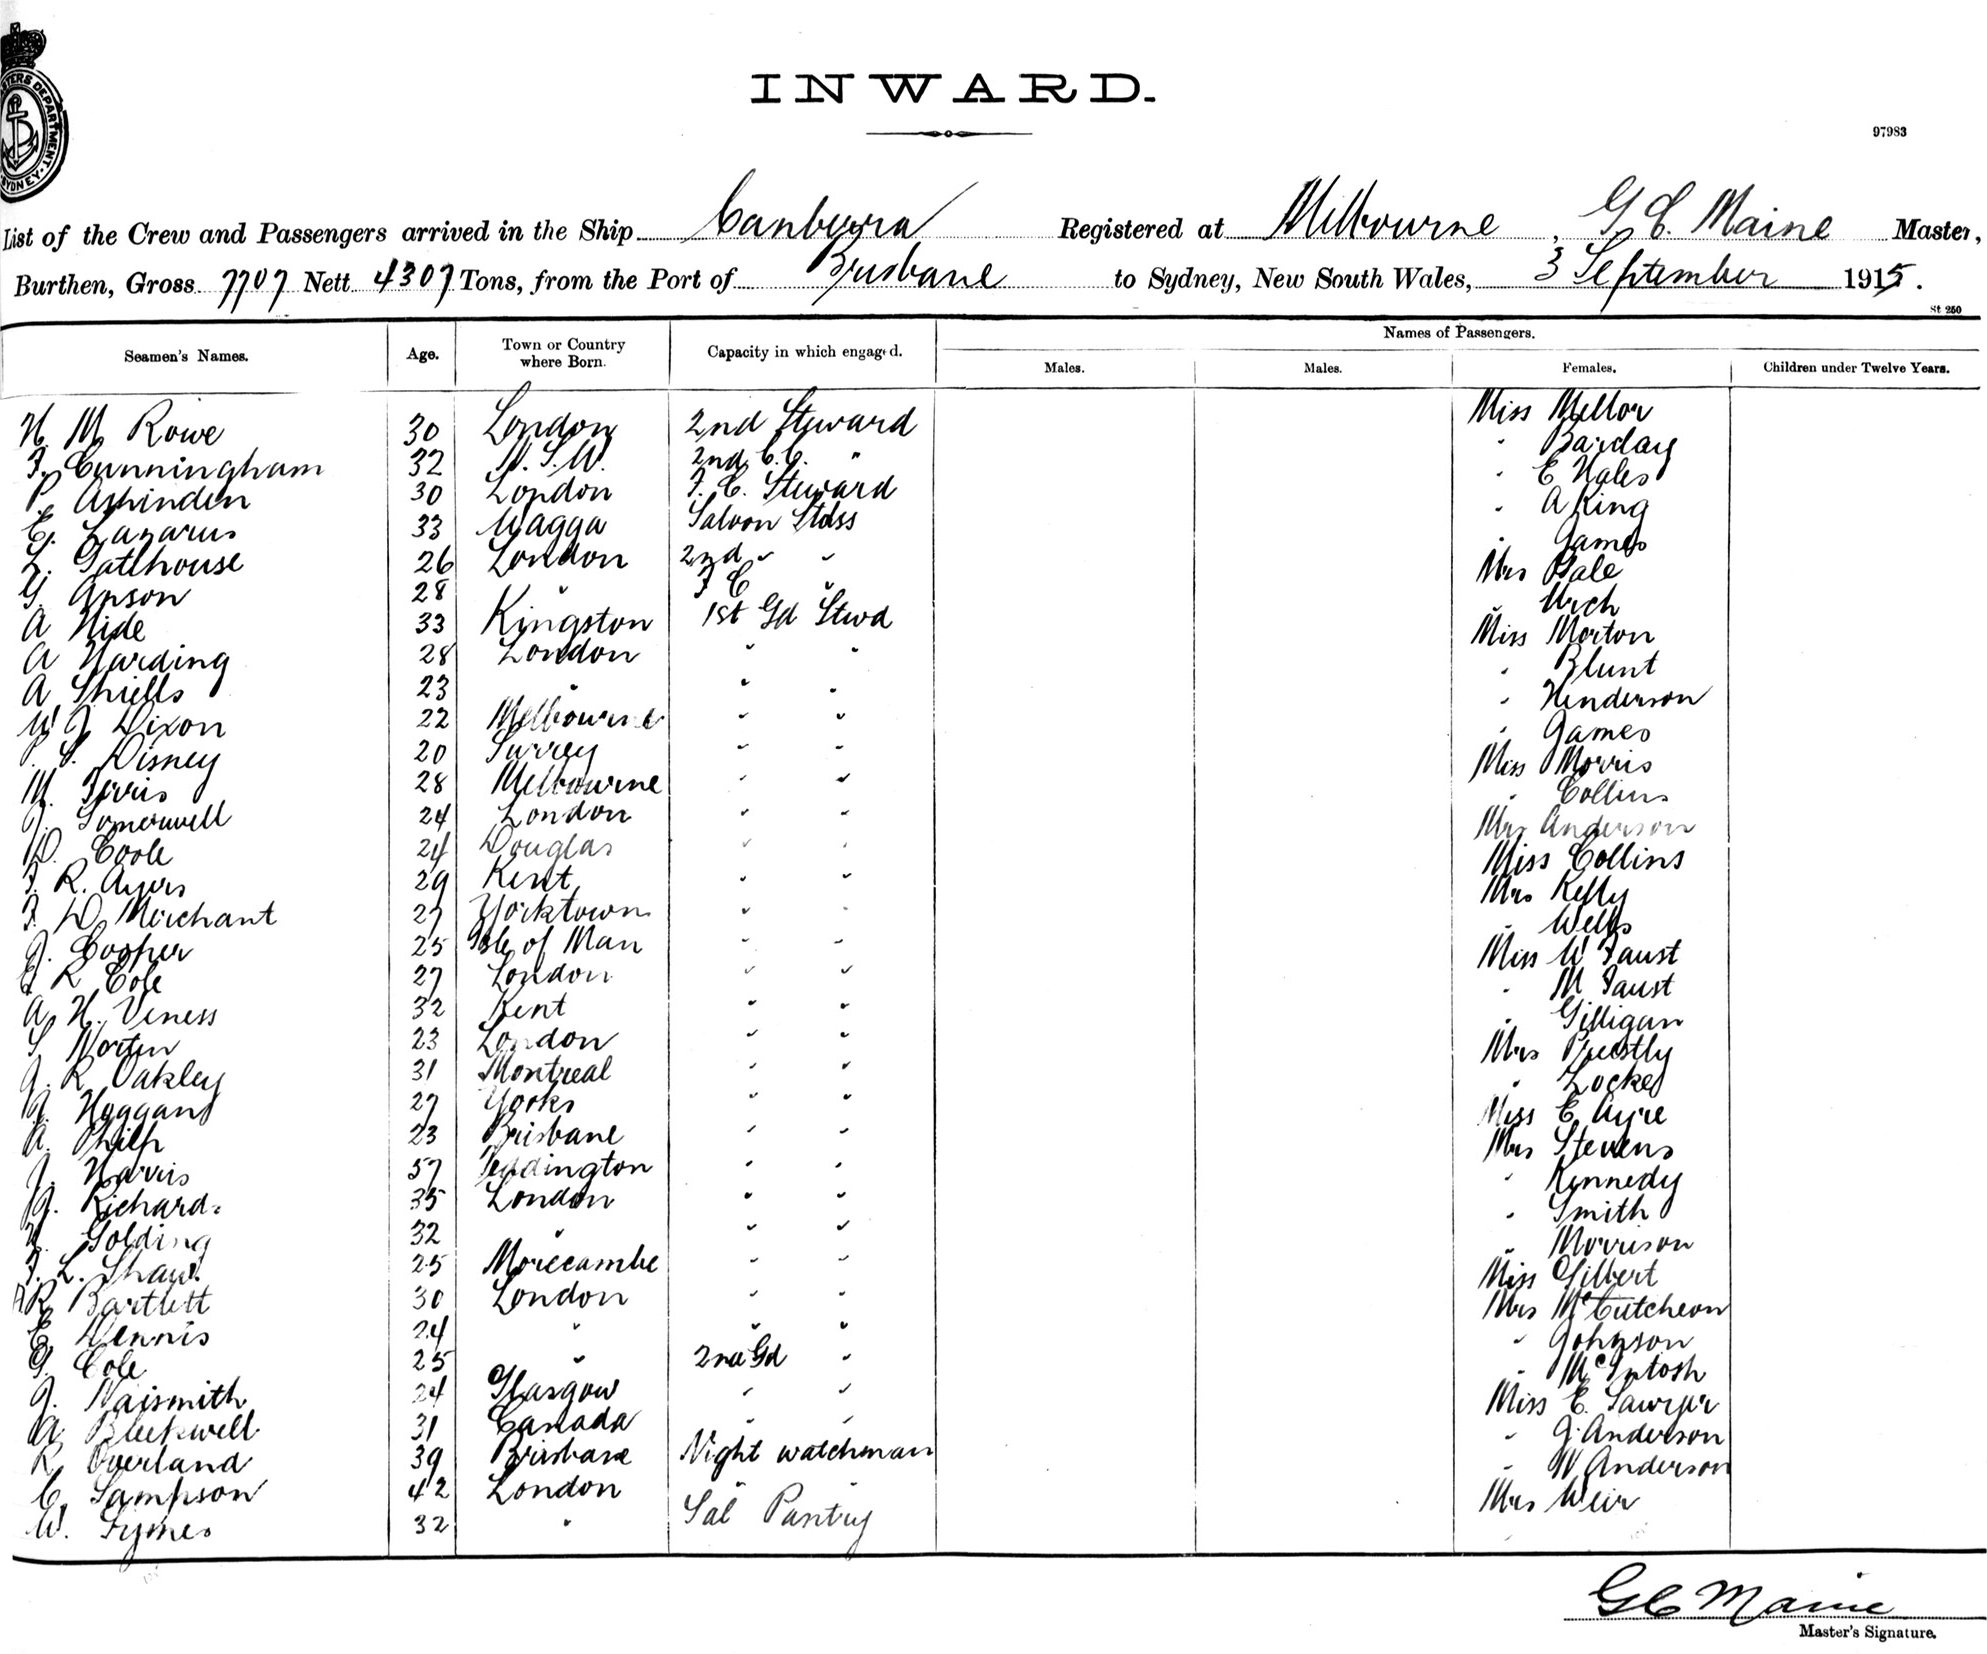 MASTERS DEPARTMENT. SYDNEY.
INWARD.
97983
List of the Crew and Passengers arrived in the Ship Canberra Registered at Melbourne, G C. Maine Master,
Burthen, Gross 7707 Nett 4307 Tons, from the Port of Brisbane to Sydney, New South Wales, 3 September 1915.
St 250
Names of Passengers.
Seamen's Names. Age. Town or Country where Born. Capacity in which engaged. Males. Males. Females. Children under Twelve Years.
H M Rowe 30 London 2nd Steward Miss Mellor
F. Cunningham 32 N. S. W. 2nd C. C. " " Barclay
P. Ashinden 30 London F. C. Steward " E Hales
E. Lazarus 33 Wagga Saloon Stdss " A King
L. Gatehouse 26 London 2nd " " " James
G. Anson 28 " F C " Mrs Gale
A Hide 33 Kingston 1st Gd Stwd " Urch
A Harding 28 London " " Miss Morton
A Shiells 23 " " " " Blunt
W J Dixon 22 Melbourne " " " Henderson
S. Disney 20 Surrey " " " James
M. Ferris 28 Melbourne " " Miss Morris
J. Somerwell 24 London " " " Collins
D. Coole 24 Douglas " " Mrs Anderson
F. R. Ayers 29 Kent " " Miss Collins
F. D. Merchant 27 Yorktown " " Mrs Kelly
J. Cooper 25 Isle of Man " " " Wells
E R Cole 27 London " " Miss W Faust
A H. Veness 32 Kent " " " M Faust
S Norten 23 London " " " Gilligan
J. R Oakley 31 Montreal " " Mrs Priestly
J. Hoggang 27 Yorks " " " Locke
A. Philp 23 Brisbane " " Miss E Ayre
J. Harris 57 Teddington " " Mrs Stevens
J. Richards 35 London " " " Kennedy
Golding 32 " " " " Smith
F. L. Shaw 25 Morecambe " " " Morrison
R. Bartlett 30 London " " Miss Gilbert
E Dennis 24 " " " Mrs McCutcheon
G. Cole 25 " 2nd Gd " " Johnson
J. Naismith 24 Glasgow " " " McIntosh
A. Bleekwell 31 Canada " " Miss E. Sawyer
R. Overland 39 Brisbane Night watchman " J. Anderson
C. Sampson 42 London " " " W Anderson
W. Symes 32 " Sal Pantry Mrs Weir
G C Maine
Master's Signature.